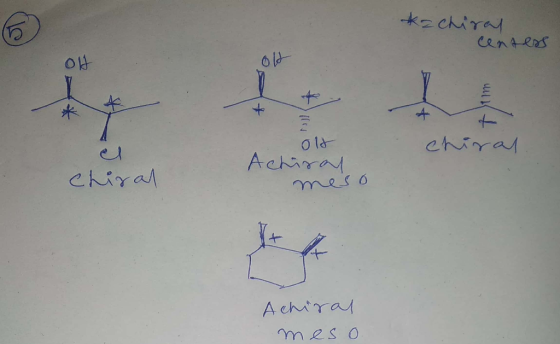 5
*=chiral
centers
OH
*
*
Cl
chiral
OH
*
*
OH
Achiral
meso
*
*
chiral
*
*
Achiral
meso